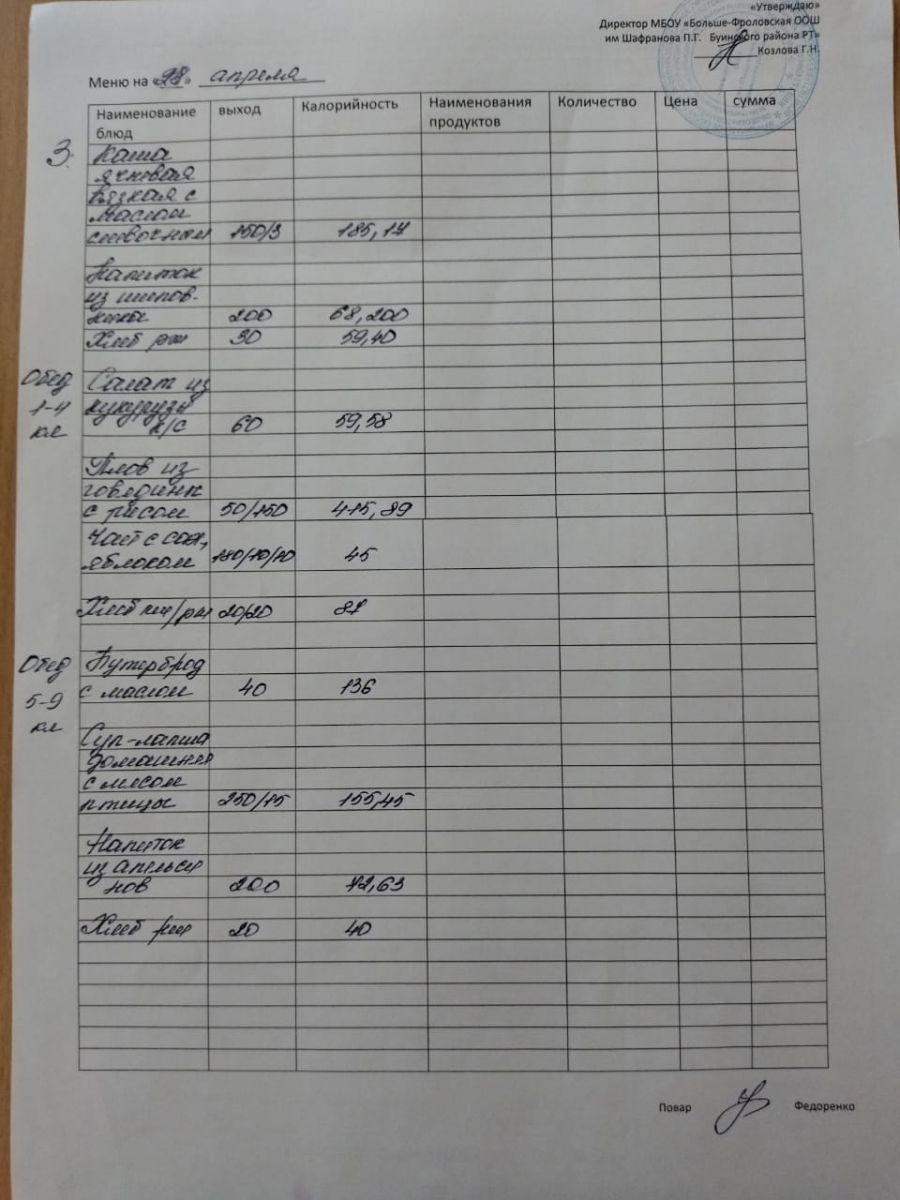 «Утверждаю»
Директор МБОУ «Больше-Фроловская ООШ
им Шафранова П.Г. Буинского района РТ»
Козлова Г.Н.
Меню на «28» апреля
Наименование блюд выход Калорийность Наименования продуктов Количество Цена сумма
З. Каша
ячневая
вязкая с
маслом
сливочным 150/3 185,17
Напиток
из шипов-
ника 200 68,200
Хлеб рж 30 59,40
Обед Салат из
1-4 кукурузы
кл к/с 60 59,58
Плов из
говядины
с рисом 50/150 415,89
Чай с сах,
яблоком 180/10/10 45
Хлеб пш/рж 20/20 87
Обед Бутерброд
5-9 с маслом 40 136
кл
Суп-лапша
домашняя
с мясом
птицы 250/15 155,45
Напиток
из апельси
нов 200 72,63
Хлеб рж 20 40
Повар Федоренко